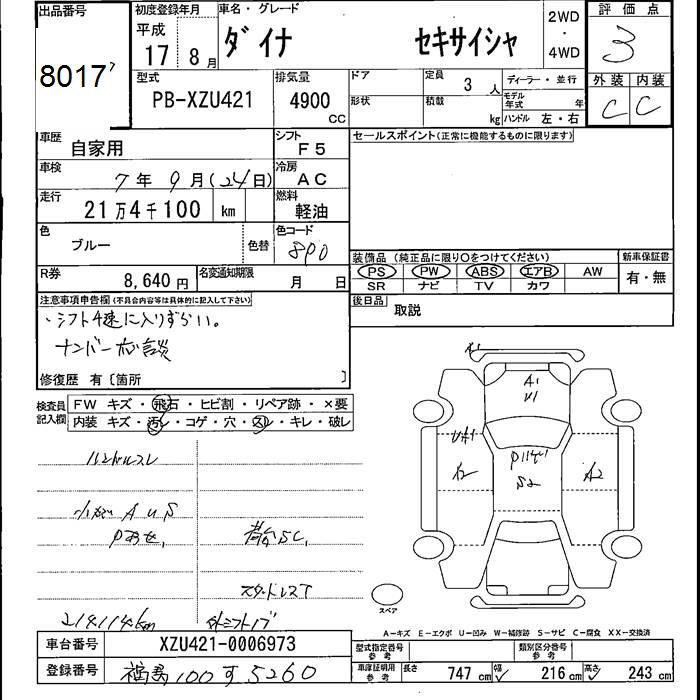 出品番号
8017
初度登録年月
平成
17年 8月
車名・グレード
ダイナ セキサイシャ
2WD
・
4WD
評価点
3
外装 内装
C C
型式
PB-XZU421
排気量
4900
CC
ドア
形状
定員
3人
積載
kg
ディーラー・並行
モデル年式 年
ハンドル 左・右
車歴
自家用
シフト
F5
車検
7年9月(24日)
冷房
AC
走行
21万4千100 km
燃料
軽油
色
ブルー
色替
色コード
890
R券
8,640円
名変通知期限
月 日
セールスポイント(正常に機能するものに限ります)
装備品(純正品に限り○をつけてください)
PS PW ABS エアB AW
SR ナビ TV カワ
新車保証書
有・無
後日品
取説
注意事項申告欄(不具合内容等は具体的に記入して下さい)
・シフト4速に入りずらい。
ナンバー相談
修復歴 有〔箇所 〕
検査員記入欄
FW キズ・飛石・ヒビ割・リペア跡・×要
内装 キズ・汚レ・コゲ・穴・スレ・キレ・破レ
ハンドルスレ
小傷 A U S
荷台SC,
スタッドレスT
214114km
外シフトノブ
A1
A1
U1
A2
S2
A2
スペア
A-キズ E-エクボ U-凹み W-補修跡 S-サビ C-腐食 XX-交換済
車台番号
XZU421-0006973
登録番号
福島100す5260
型式指定番号
参考
類別区分番号
参考
車庫証明用
参考
長さ 747cm 幅 216cm 高さ 243cm